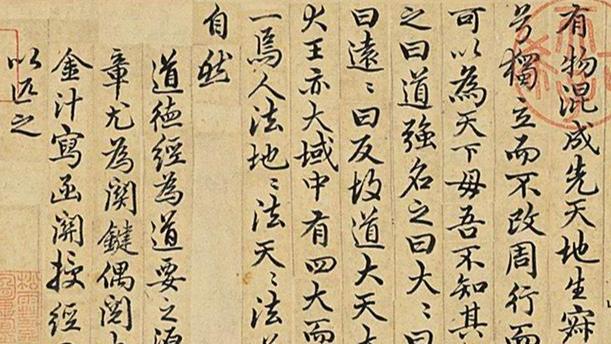 有物混成先天地生寂
兮獨立而不改周行而
可以為天下母吾不知其
之曰道強名之曰大〻曰
曰遠〻曰反故道大天大
大王亦大域中有四大而
一焉人法地〻法天〻法
自然
道德經為道要之
章尤為関鍵偶閱
金汁寫函關授經
以匹之